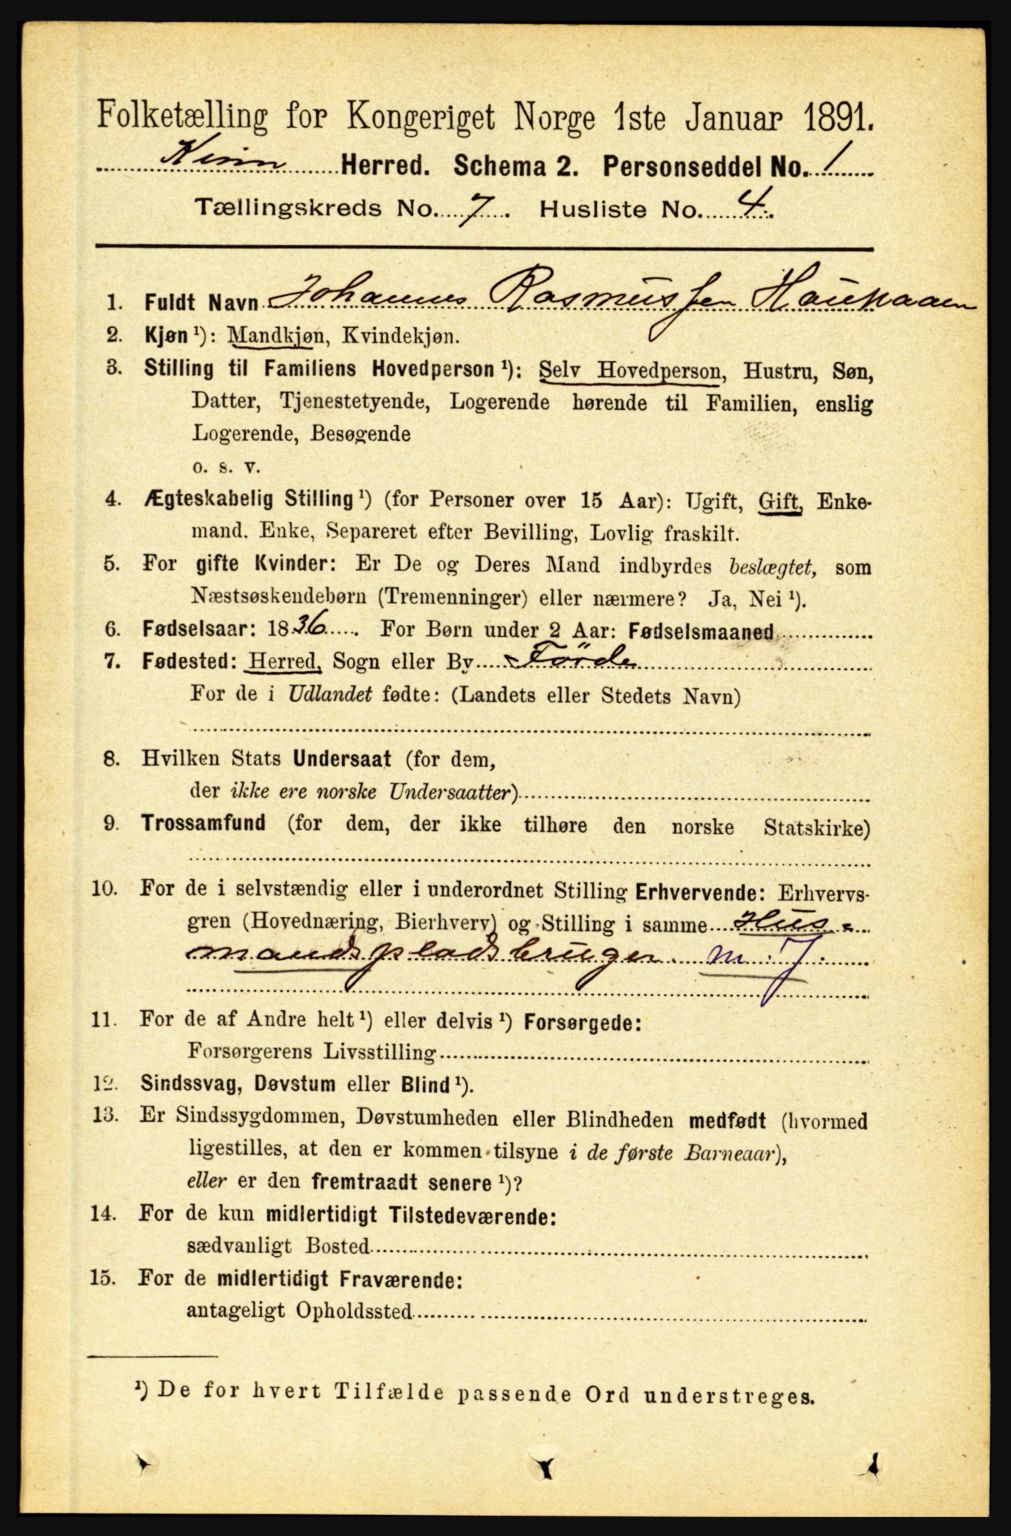 Folketælling for Kongeriget Norge 1ste Januar 1891.
Kinn Herred. Schema 2. Personseddel No. 1
Tællingskreds No. 7. Husliste No. 4.
1. Fuldt Navn Johannes Rasmussen
2. Kjøn ¹): Mandkjøn, Kvindekjøn.
3. Stilling til Familiens Hovedperson ¹): Selv Hovedperson, Hustru, Søn,
Datter, Tjenestetyende, Logerende hørende til Familien, enslig
Logerende, Besøgende
o. s. v.
4. Ægteskabelig Stilling ¹) (for Personer over 15 Aar): Ugift, Gift, Enke-
mand. Enke, Separeret efter Bevilling, Lovlig fraskilt.
5. For gifte Kvinder: Er De og Deres Mand indbyrdes beslægtet, som
Næstsøskendebørn (Tremenninger) eller nærmere? Ja, Nei ¹).
6. Fødselsaar: 1836. For Børn under 2 Aar: Fødselsmaaned
7. Fødested: Herred, Sogn eller By Förde
For de i Udlandet fødte: (Landets eller Stedets Navn)
8. Hvilken Stats Undersaat (for dem,
der ikke ere norske Undersaatter)
9. Trossamfund (for dem, der ikke tilhøre den norske Statskirke)
10. For de i selvstændig eller i underordnet Stilling Erhvervende: Erhvervs-
gren (Hovednæring, Bierhverv) og Stilling i samme Hus-
mandspladsbruger. m. J.
11. For de af Andre helt ¹) eller delvis ¹) Forsørgede:
Forsørgerens Livsstilling
12. Sindssvag, Døvstum eller Blind ¹).
13. Er Sindssygdommen, Døvstumheden eller Blindheden medfødt (hvormed
ligestilles, at den er kommen tilsyne i de første Barneaar),
eller er den fremtraadt senere ¹)?
14. For de kun midlertidigt Tilstedeværende:
sædvanligt Bosted
15. For de midlertidigt Fraværende:
antageligt Opholdssted
¹) De for hvert Tilfælde passende Ord understreges.